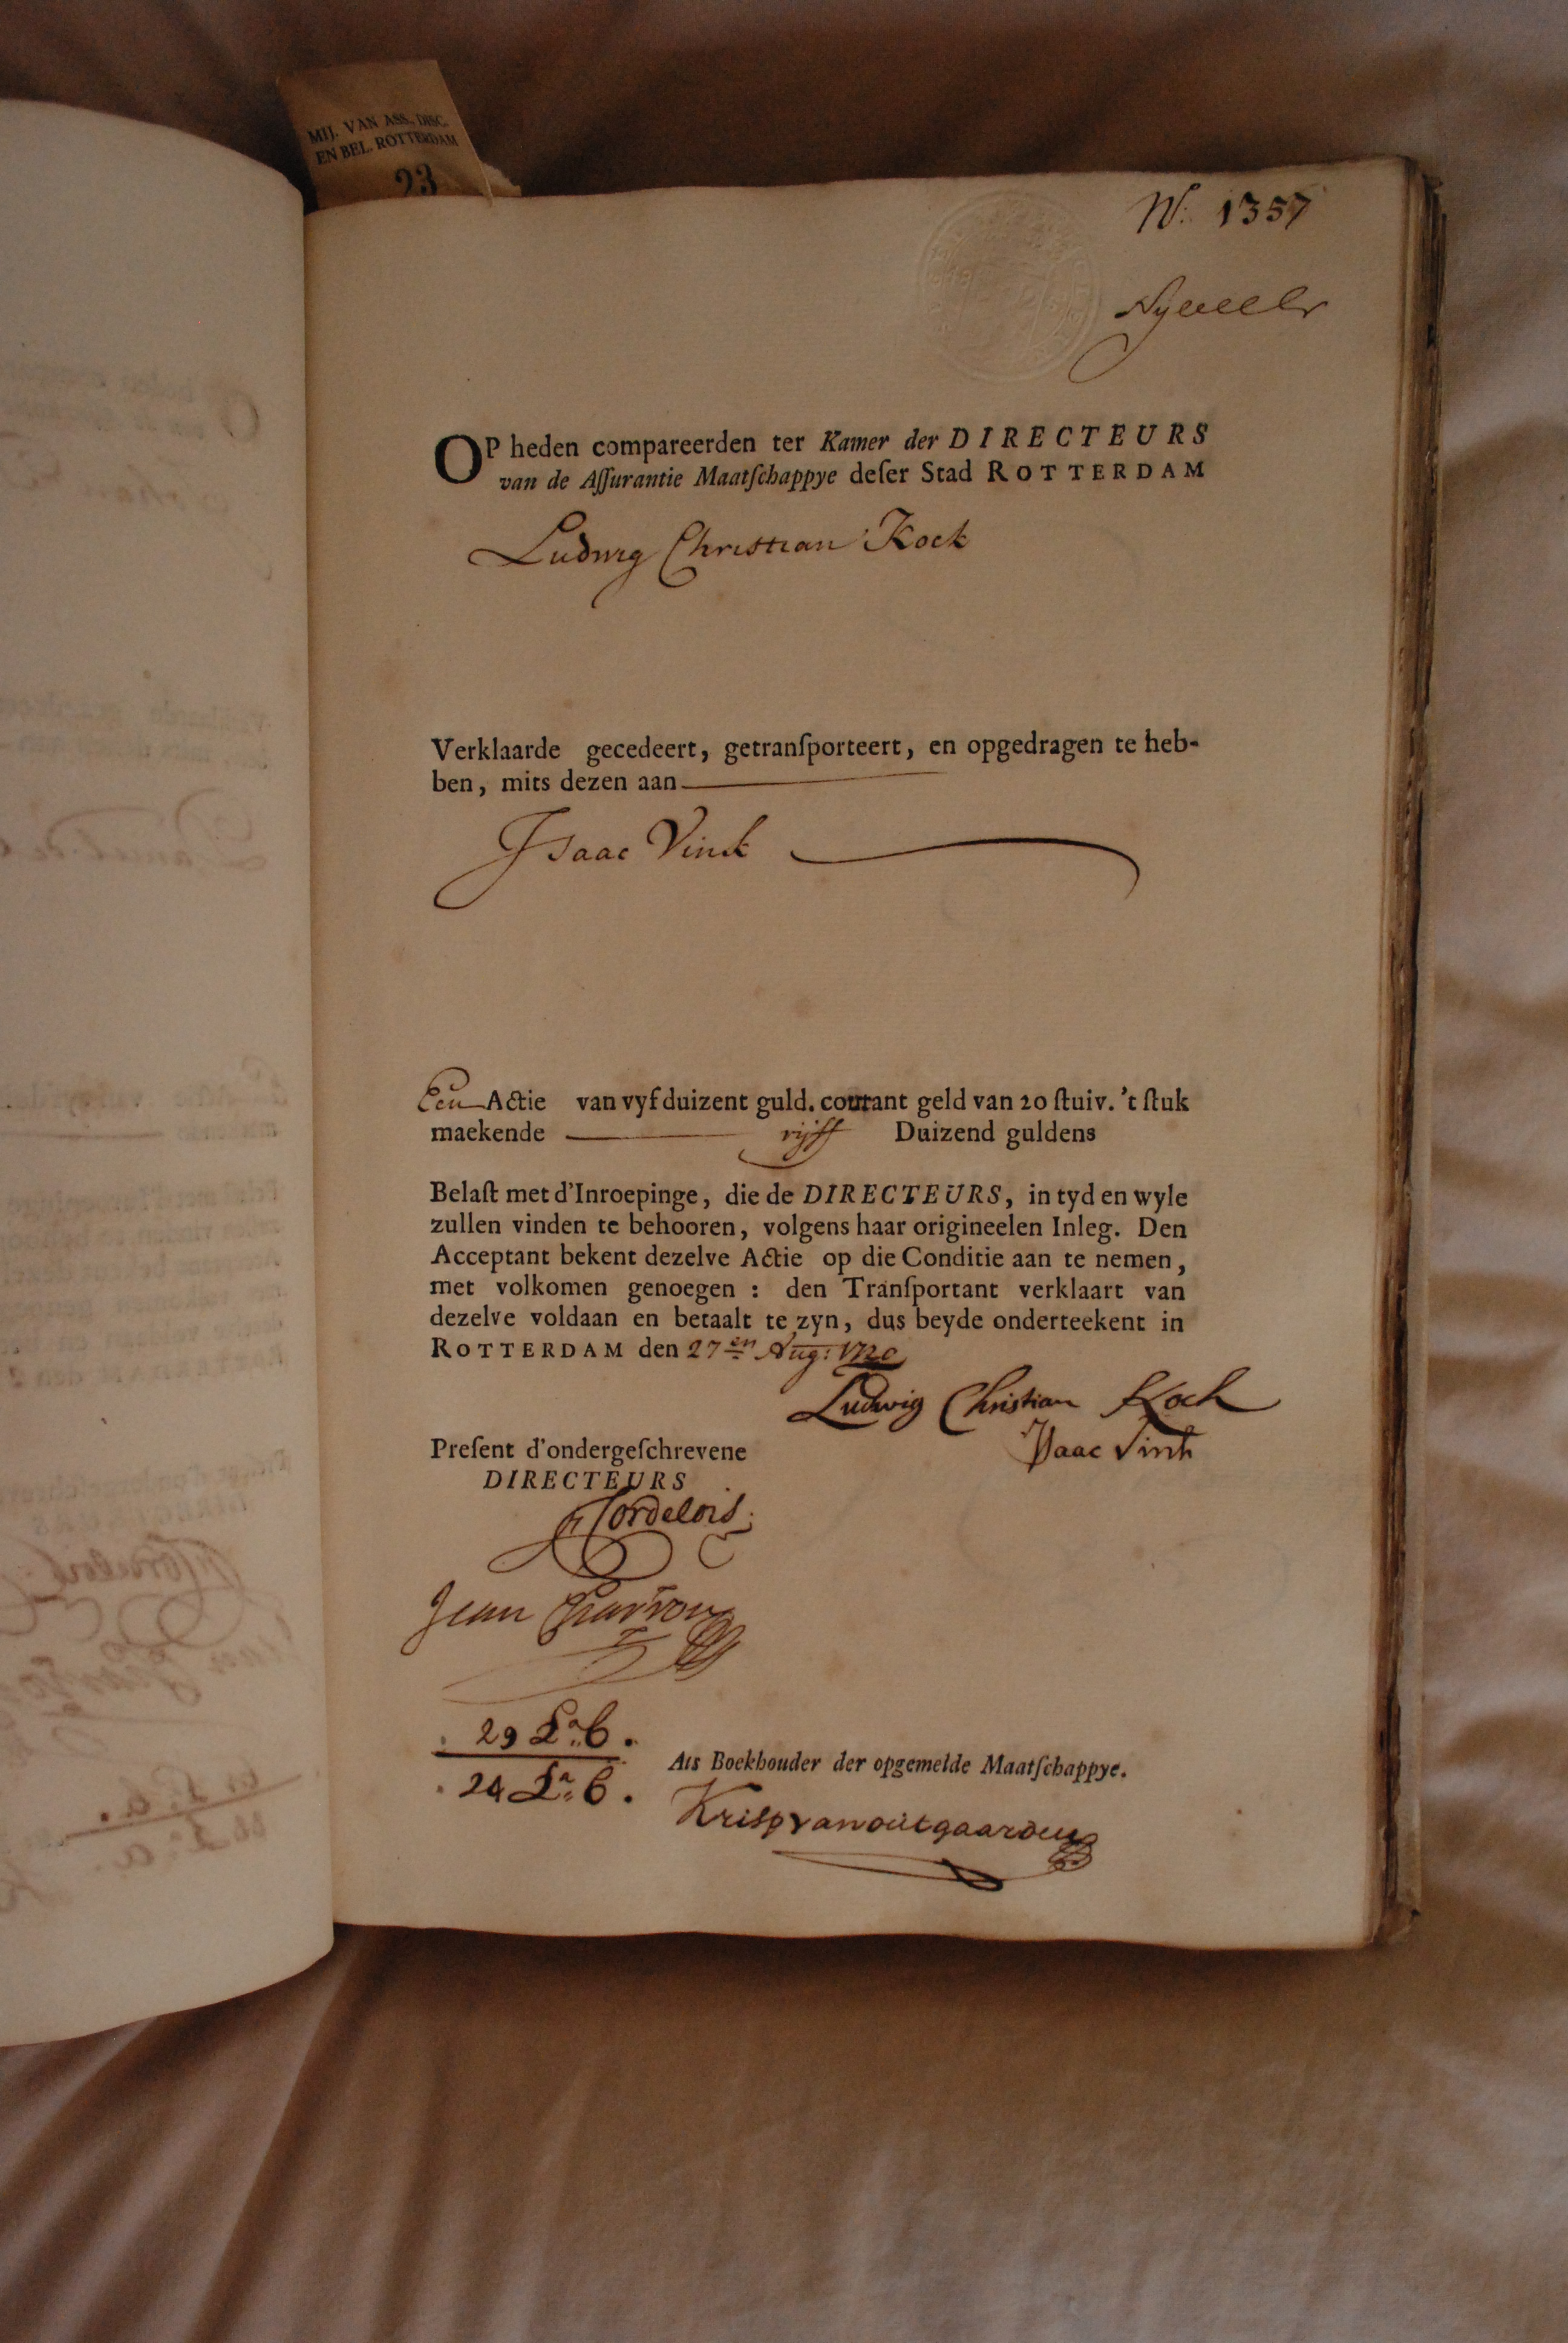 MIJ. VAN ASS., DISC.
EN BEL. ROTTERDAM
23
N:. 1357
OP heden compareerden ter Kamer der DIRECTEURS
van de Aſſurantie Maatſchappye deſer Stad ROTTERDAM
Ludwig Christian Kock
Verklaarde gecedeert, getranſporteert, en opgedragen te heb-
ben, mits dezen aan
Isaac Vink
Een Actie van vyfduizent guld. courant geld van 20 ſtuiv. 't ſtuk
maekende vijff Duizend guldens
Belaſt met d'Inroepinge, die de DIRECTEURS, in tyd en wyle
zullen vinden te behooren, volgens haar origineelen Inleg. Den
Acceptant bekent dezelve Actie op die Conditie aan te nemen,
met volkomen genoegen : den Tranſportant verklaart van
dezelve voldaan en betaalt te zyn, dus beyde onderteekent in
ROTTERDAM den 27en Aug: 1720
Ludwig Christian Koch
Isaac Vink
Preſent d'ondergeſchrevene
DIRECTEURS
Cordelois
Jean
29 La: 6.
24 La: 6.
Als Boekhouder der opgemelde Maatſchappye.
Krisp van outgaarden